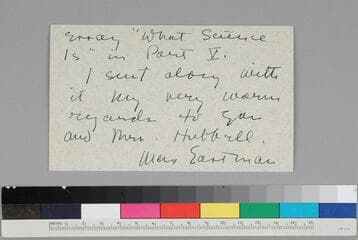 essay "What Science
Is" in Part V.
I sent along with
it my very warm
regards to you
and Mrs. Hubbell.
Max Eastman